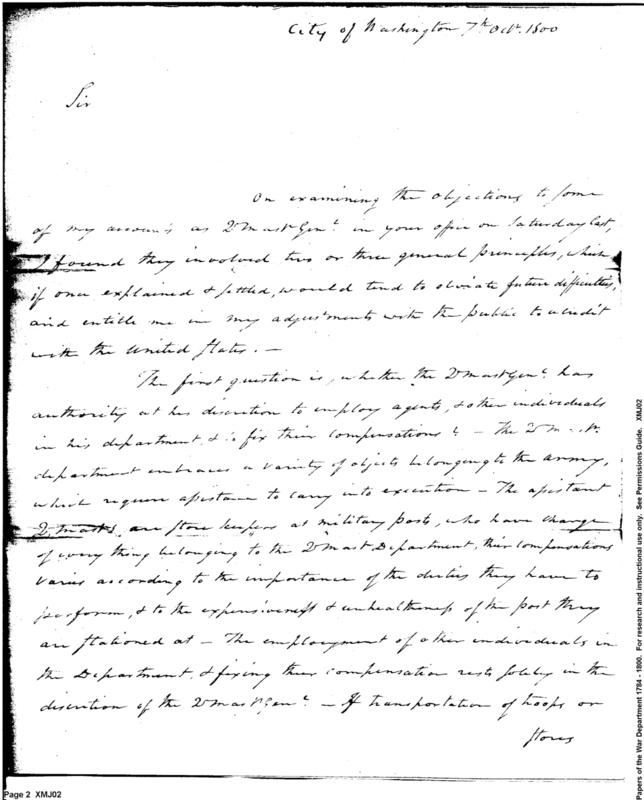 City of Washington 7th Octr. 1800
Sir
On examining the objections to some
of my accounts as Qr Mastr Genl. in your office on Saturday last,
I found they involved two or three general principles, which
if once explained & settled, would tend to obviate future difficulties,
and entitle me in my adjustments with the public to a credit
with the United States. —
The first question is, whether the Qr Mastr Genl. has
authority at his discretion to employ agents, & other individuals
in his department, & to fix their compensations — The Qr M
department embraces a variety of objects belonging to the army,
which require assistance to carry into execution — The assistant
Qr Mastrs. are store keepers at military posts, who have charge
of every thing belonging to the Qr Mast Department, their compensations
varies according to the importance of the duties they have to
perform, & to the expensiveness & unhealthiness of the post they
are stationed at — The employment of other individuals in
the Department, & fixing their compensation rests solely in the
discretion of the Qr Mastr Genl. — If transportation of troops or
stores
Page 2 XMJ02
Papers of the War Department 1784 - 1800. For research and instructional use only. See Permissions Guide. XMJ02